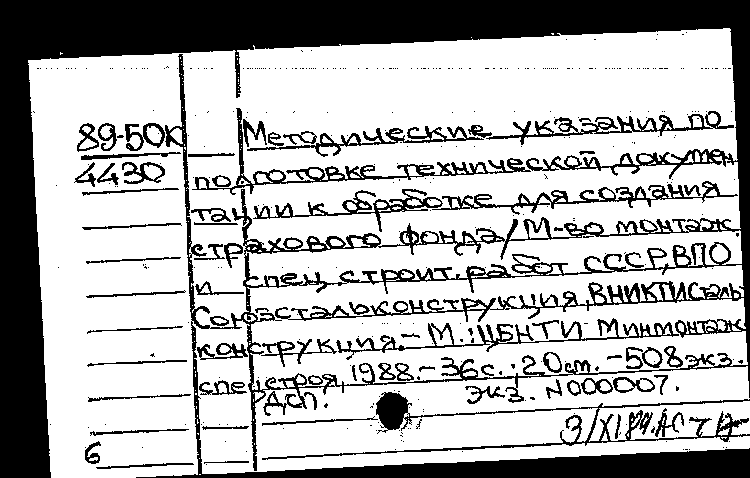 89-50К Методические указания по
4430 подготовке технической докумен
тации к обработке для создания
страхового фонда/М-во монтаж.
и спец. строит. работ СССР, ВПО
Союзстальконструкция, ВНИКТИСталь
конструкция.- М.: ЦБНТИ Минмонтаж
спецстроя, 1988.- 36с.; 20см. -508экз.
Дсп. экз. N000007.
3/XI89.
6